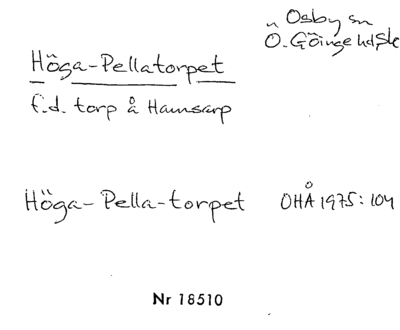 Osby sn
Ö. Göinge hd, Sk
Höga-Pellatorpet
f.d. torp å Hamsarp
Höga-Pella-torpet OHÅ 1975:104
Nr 18510